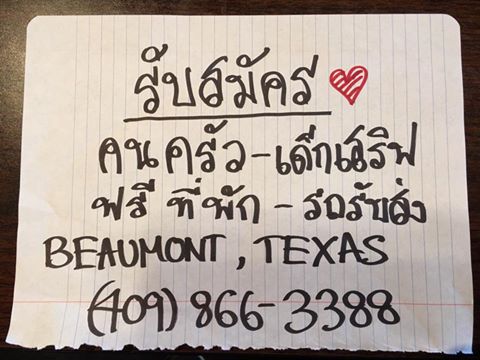 รับสมัคร
คนครัว-เด็กเสริฟ
ฟรี ที่พัก - รถรับส่ง
BEAUMONT, TEXAS
(409) 866-3388